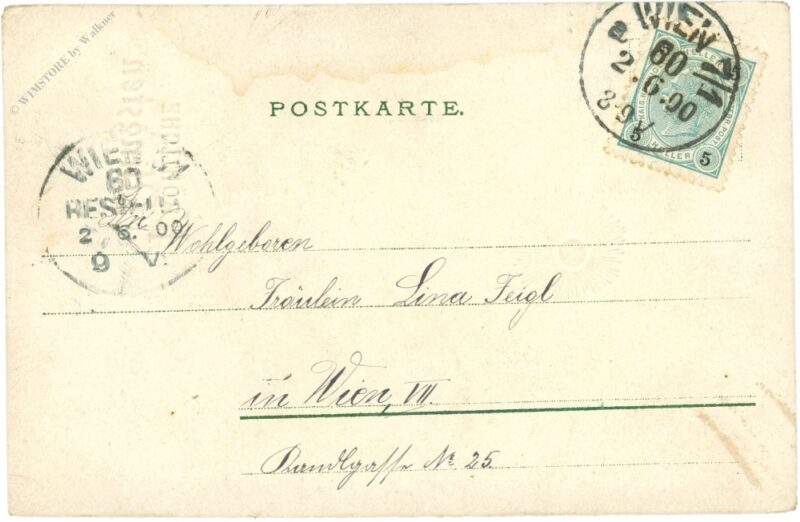 © WIMSTORE by Walkner
WIEN 1/1
60
2.6.00
8-9V
5 HELLER 5
POSTKARTE.
WIEN
60
BESTELLT
2.6.00
9 V.
An
Wohlgeboren
Fräulein Lina Feigl
in Wien, VII.
Kandlgasse № 25.